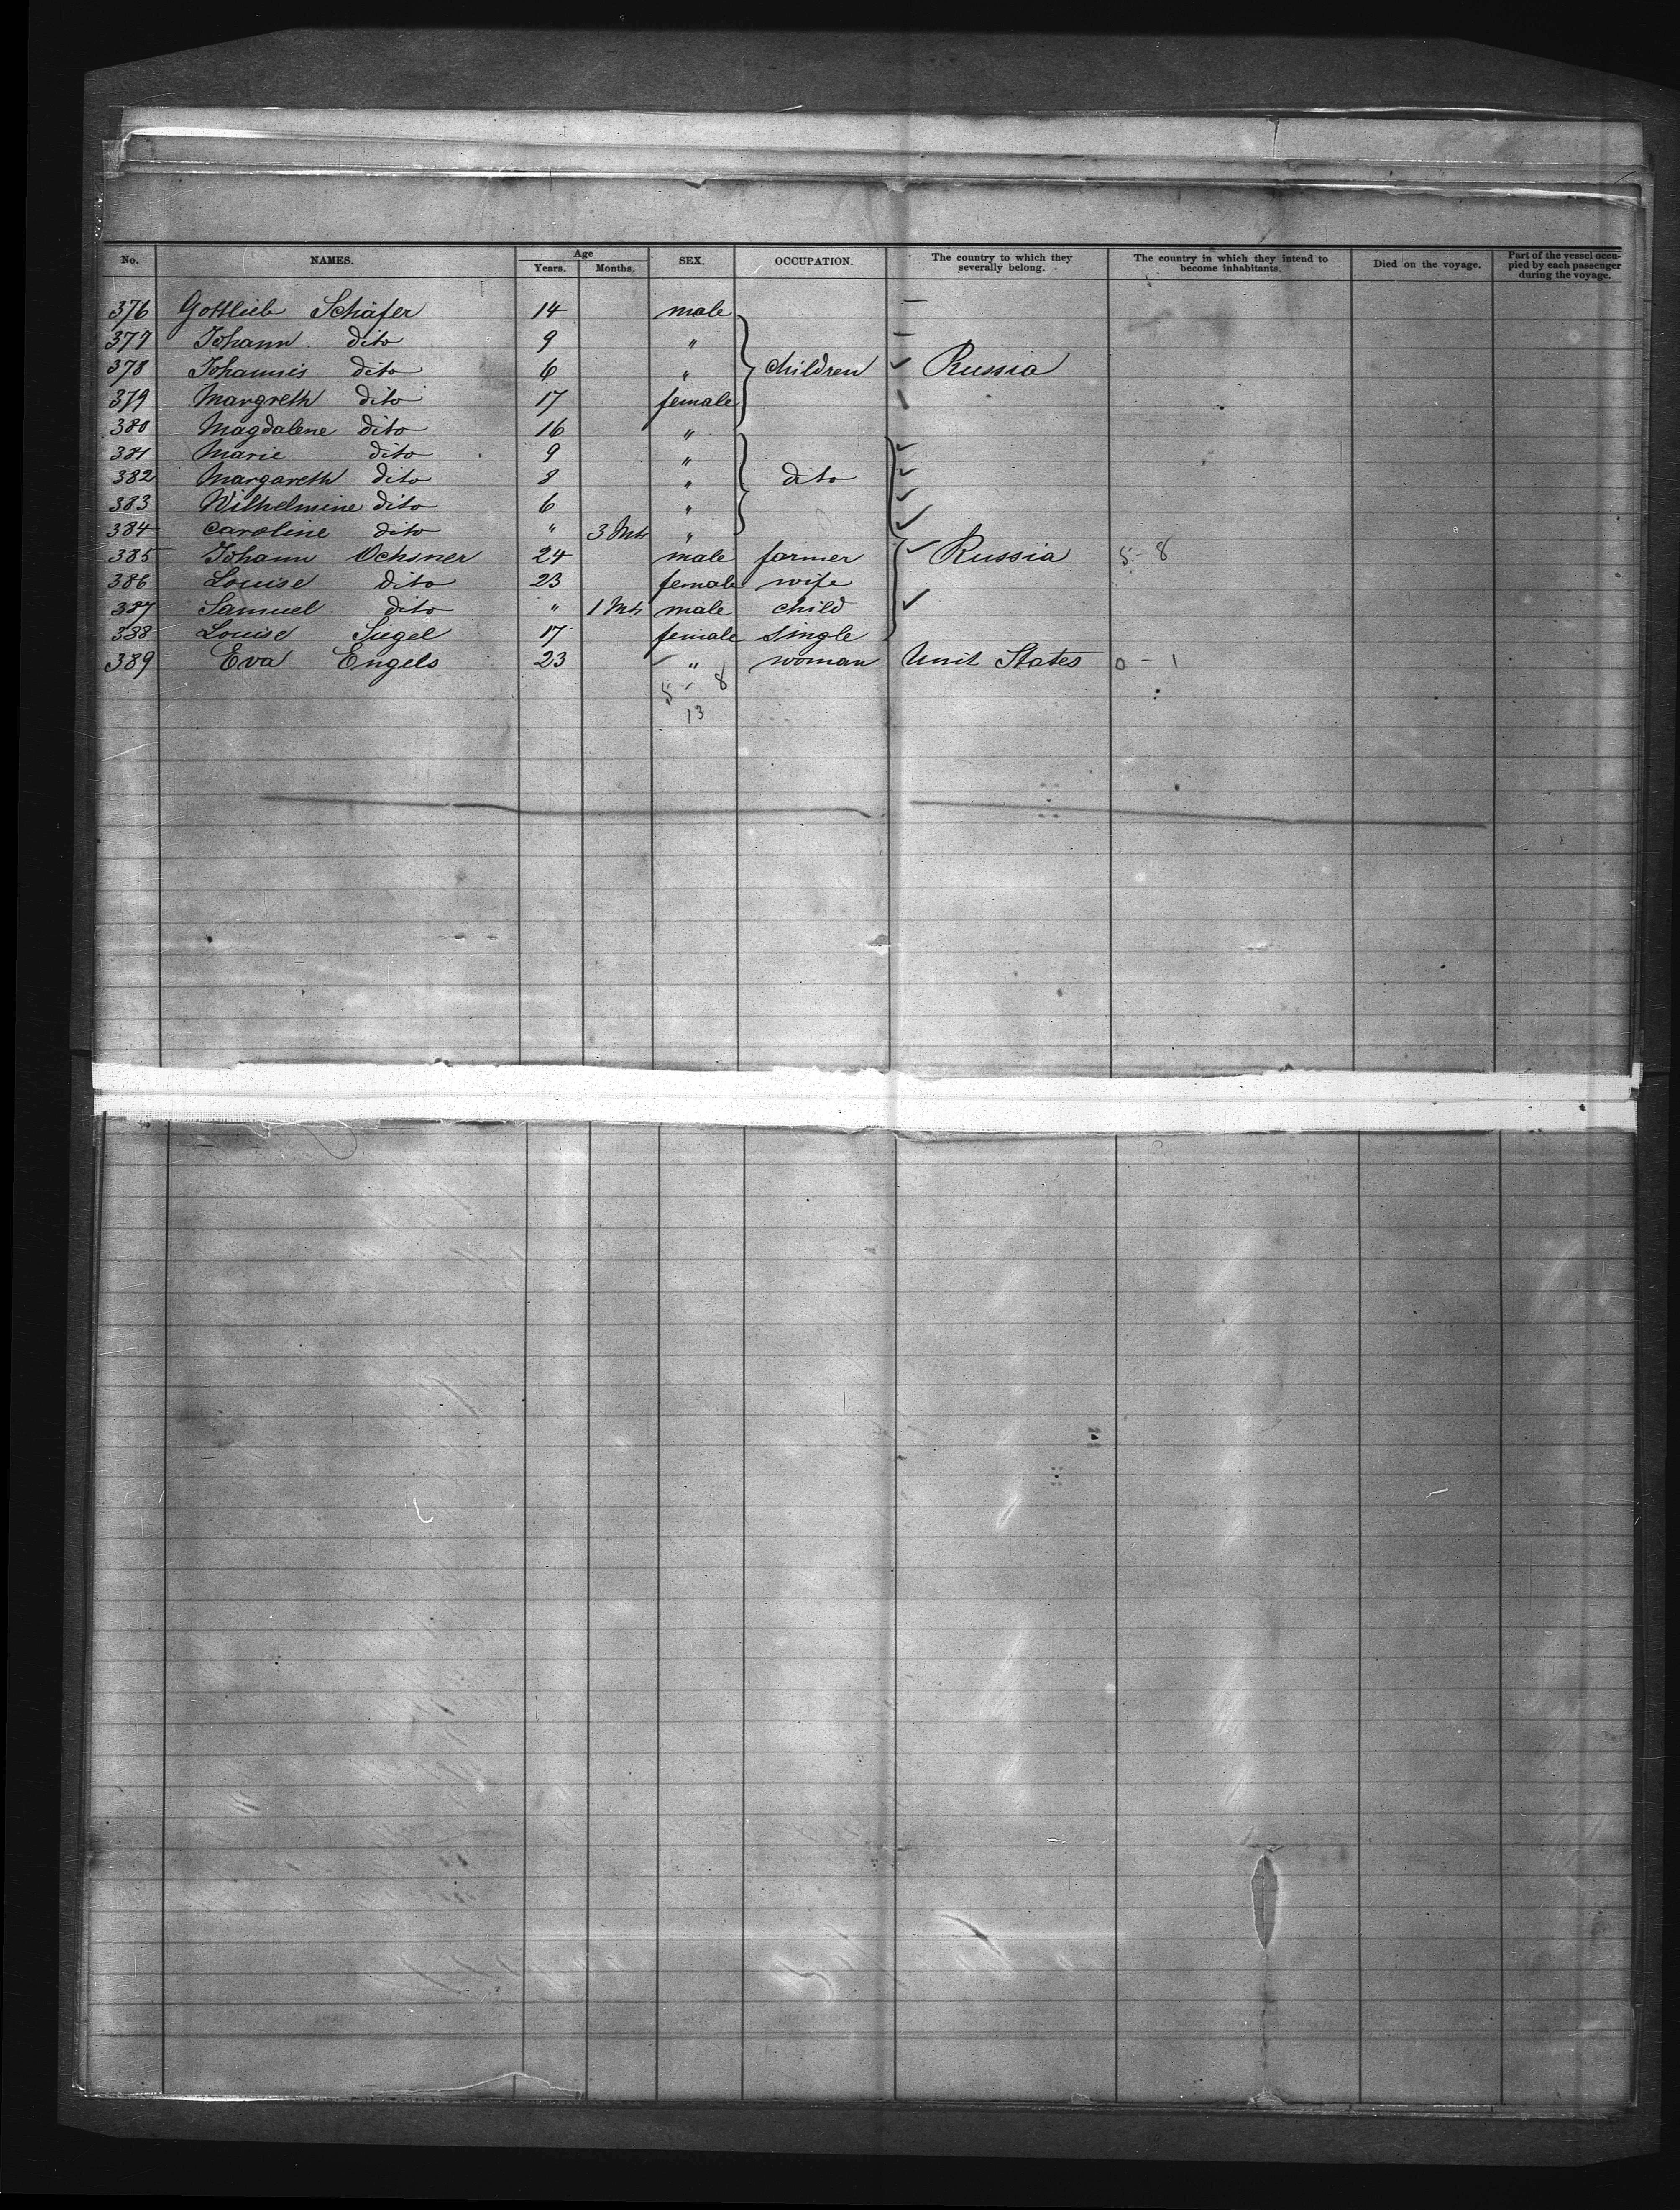 No. NAMES. Age Years. Months. SEX. OCCUPATION. The country to which they severally belong. The country in which they intend to become inhabitants. Died on the voyage. Part of the vessel occupied by each passenger during the voyage.
376 Gottlieb Schäfer 14 male
377 Johann dito 9 "
378 Johannes dito 6 " children Russia
379 Margreth dito 17 female
380 Magdalene dito 16 "
381 Marie dito 9 "
382 Margareth dito 8 " dito
383 Wilhelmine dito 6 "
384 Caroline dito " 3 Mts "
385 Johann Ochsner 24 male farmer Russia 5 - 8
386 Louise dito 23 female wife
387 Samuel dito " 1 Mts male child
388 Louise Siegel 17 female single
389 Eva Engels 23 " woman Unit States 0 - 1
5 - 8
13